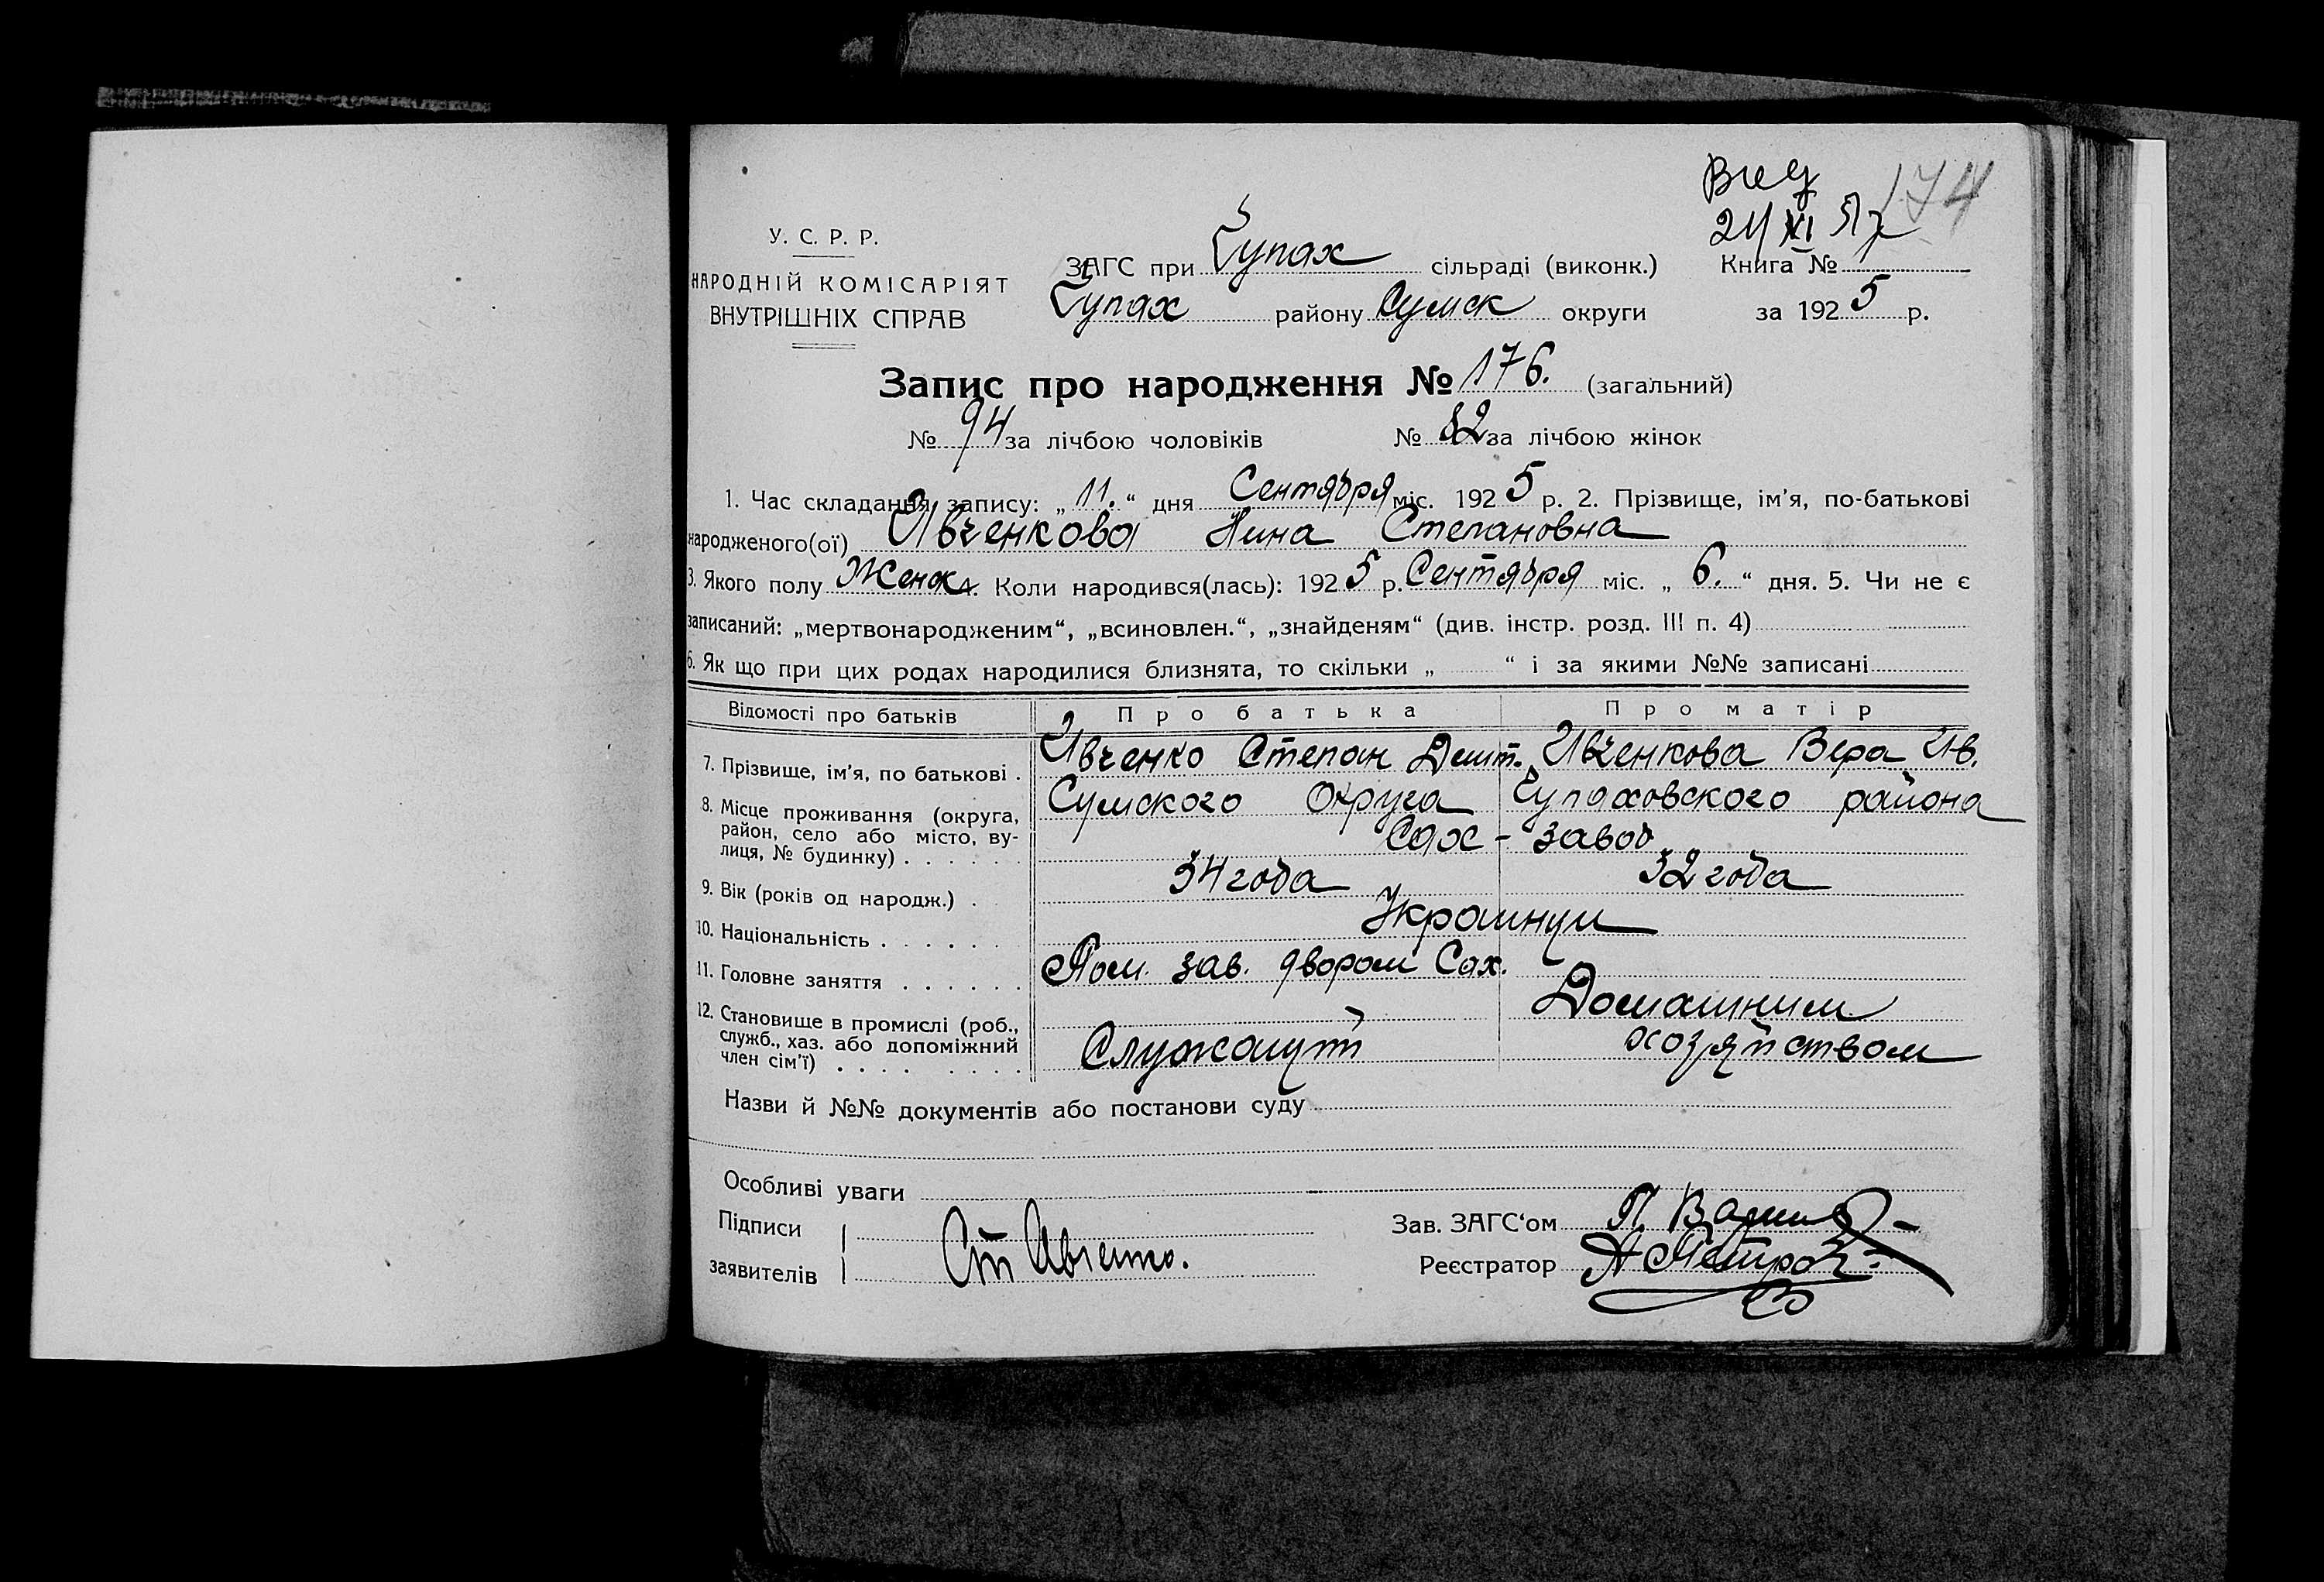 174
24 XI 51
У. С. Р. Р.
НАРОДНІЙ КОМІСАРІЯТ
ВНУТРІШНІХ СПРАВ
ЗАГС при Тупах сільраді (виконк.) Книга №
Тупах району Сумск округи за 1925 р.
Запис про народження № 176. (загальний)
№ 94 за лічбою чоловіків № 82 за лічбою жінок
1. Час складання запису: „11.“ дня Сентября міс. 1925 р. 2. Прізвище, ім'я, по-батькові
народженого(ої) Ивченкова Нина Степановна
3. Якого полу Женск 4. Коли народився(лась): 1925 р. Сентября міс. „6.“ дня. 5. Чи не є
записаний: „мертвонародженим“, „всиновлен.“, „знайденям“ (див. інстр. розд. III п. 4)
6. Як що при цих родах народилися близнята, то скільки „ “ і за якими №№ записані
Відомості про батьків Про батька Про матір
7. Прізвище, ім'я, по батькові . Ивченко Степан Дмит. Ивченкова Вера Ив.
8. Місце проживання (округа, район, село або місто, вулиця, № будинку) . . . . . . Сумского Округа Тупаховского района
Сах-завод
9. Вік (років од народж.) . 34 года 32 года
10. Національність . . . . . . Украинци
11. Головне заняття . . . . . . Пом. зав. двором Сах.
Домашним
хозяйством
12. Становище в промислі (роб., служб., хаз. або допоміжний член сім'ї) . . . . . . . . Служащий
Назви й №№ документів або постанови суду
Особливі уваги
Підписи
заявителів Ст Ивченко.
Зав. ЗАГС'ом
Реєстратор А Петров